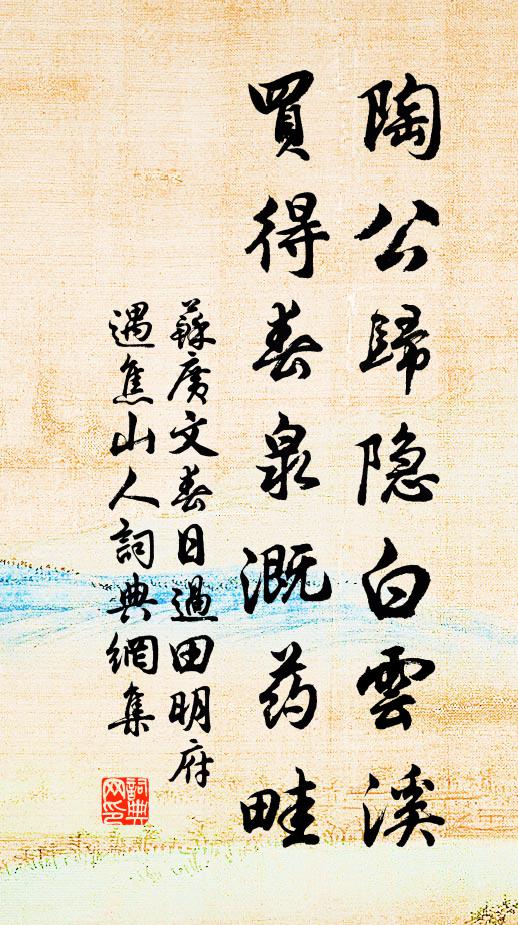 陶公歸隐白雲溪
買得春泉溉药畦
蘇廣文春日過田明府
遇焦山人詞典網集
詞典网印